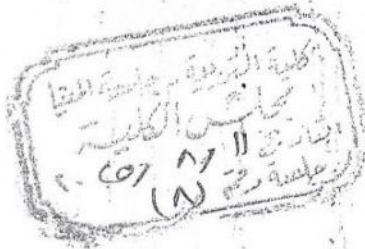 كلية التربية - جامعة المنيا
مجلس الكلية
التاريخ ١١ / ٨ / ٢٠١٥
جلسة رقم (٨)